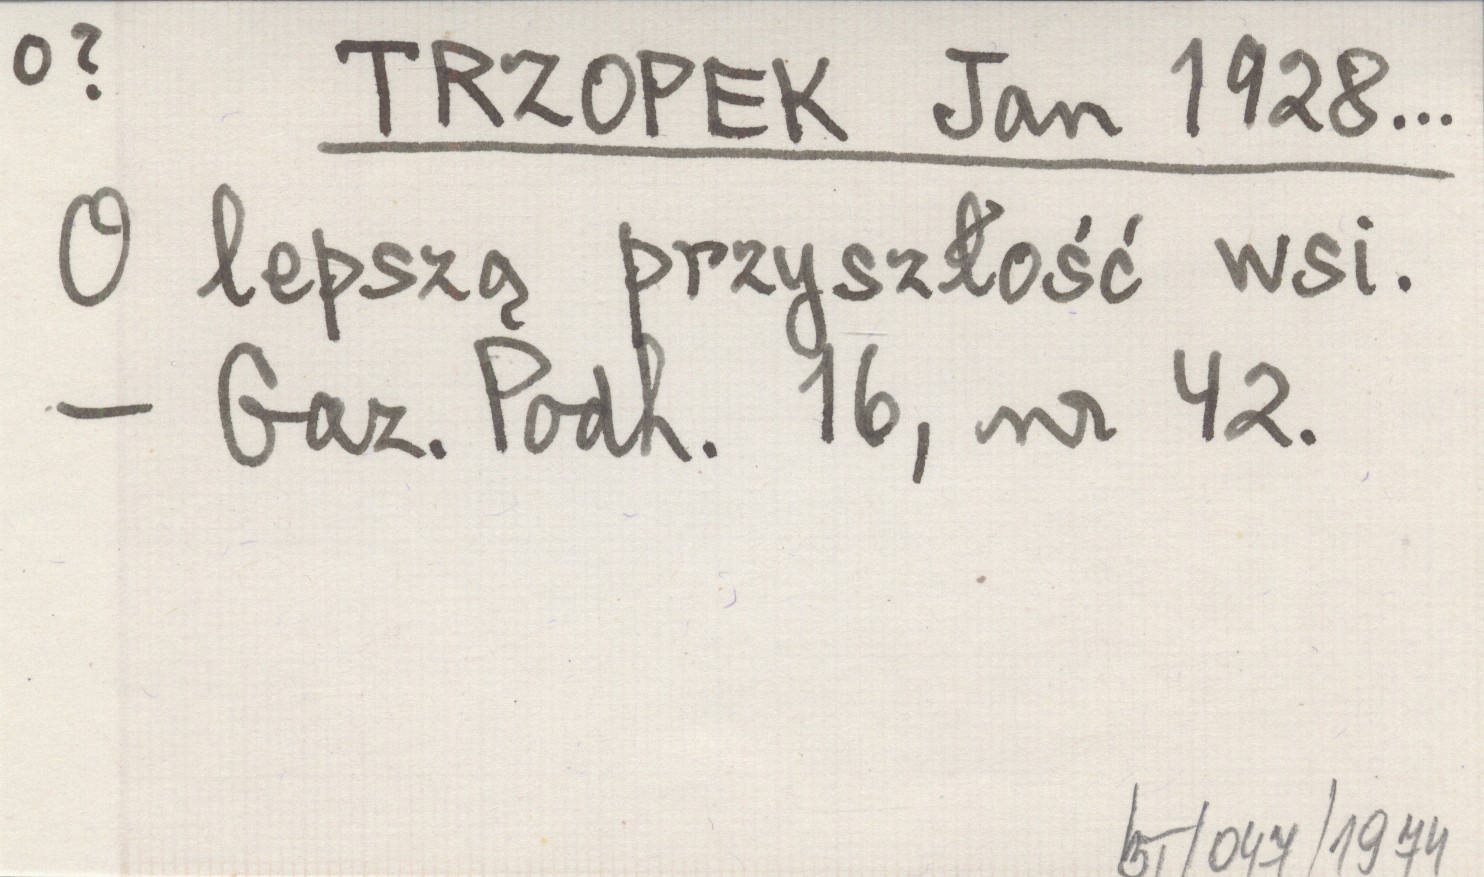 o?
TRZOPEK Jan 1928...
O lepszą przyszłość wsi.
– Gaz. Podh. 16, nr 42.
/047/1974